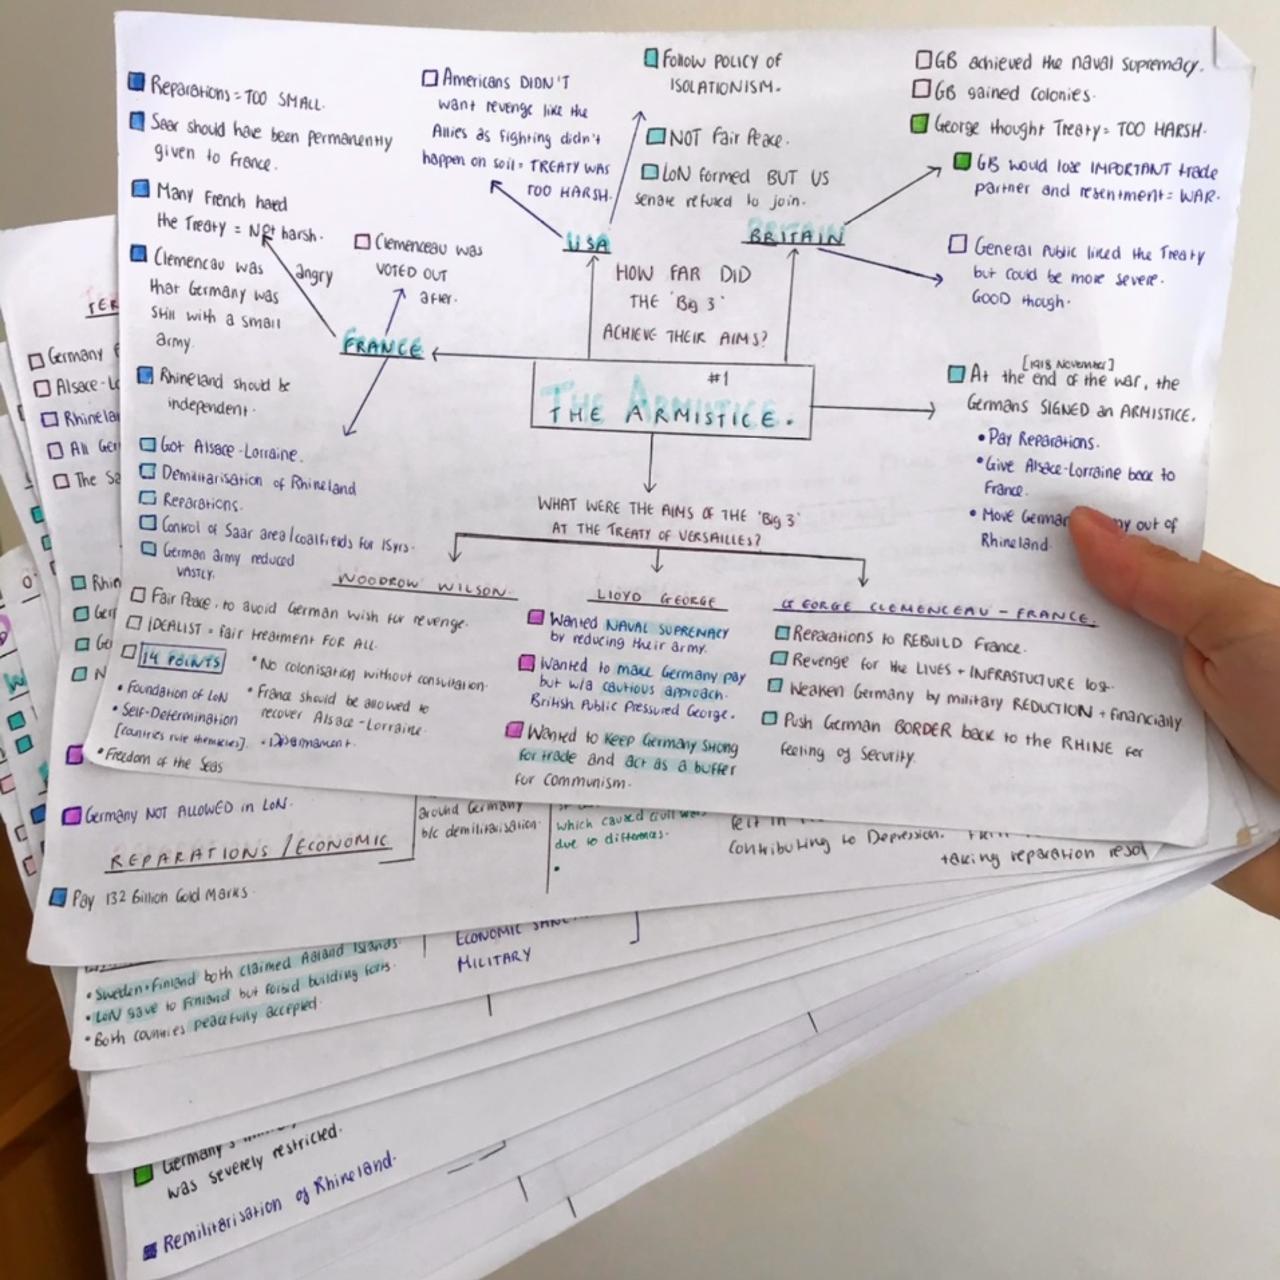 Reparations = TOO SMALL.
Saar should have been permanently
given to France.
Many French hated
the Treaty = NOT harsh.
Clemencau was
angry
that Germany was
still with a small
army.
Rhineland should be
independent.
Clemenceau was
VOTED OUT
after.
FRANCE
Got Alsace-Lorraine.
Demilitarisation of Rhineland
Reparations.
Control of Saar area/coalfields for 15yrs.
German army reduced
VASTLY.
Americans DIDN'T
want revenge like the
Allies as fighting didn't
happen on soil = TREATY WAS
TOO HARSH.
Follow POLICY OF
ISOLATIONISM.
NOT Fair Peace.
LoN formed BUT US
senate refused to join.
USA
GB achieved the naval supremacy.
GB gained colonies.
George thought Treaty = TOO HARSH.
GB would lose IMPORTANT trade
partner and resentment = WAR.
BRITAIN
General Public liked the Treaty
but could be more severe.
GOOD though.
HOW FAR DID
THE 'Big 3'
ACHIEVE THEIR AIMS?
#1
THE ARMISTICE.
[1918 NOVEMBER]
At the end of the war, the
Germans SIGNED an ARMISTICE.
• Pay Reparations.
• Give Alsace-Lorraine back to
France.
• Move German out of
Rhineland.
WHAT WERE THE AIMS OF THE 'Big 3'
AT THE TREATY OF VERSAILLES?
WOODROW WILSON.
Fair Peace. to avoid German wish for revenge.
IDEALIST = fair treatment FOR ALL.
14 POINTS
• Foundation of LoN
• Self-Determination
[countries rule themselves].
• Freedom of the Seas
• No colonisation without consultation.
• France should be allowed to
recover Alsace-Lorraine.
• Disarmament.
LLOYD GEORGE
Wanted NAVAL SUPREMACY
by reducing their army.
Wanted to make Germany pay
but w/a cautious approach.
British Public Pressured George.
Wanted to keep Germany strong
for trade and act as a buffer
for communism.
GEORGE CLEMENCEAU - FRANCE.
Reparations to REBUILD France.
Revenge for the LIVES + INFRASTUCTURE lost.
Weaken Germany by military REDUCTION + financially
Push German BORDER back to the RHINE for
feeling of security.
TER
Germany
Alsace-Lo
Rhinela
All Ger
The Sa
Rhin
Ger
Go
N
Germany NOT ALLOWED in LoN.
REPARATIONS / ECONOMIC
Pay 132 Billion Gold Marks.
around Germany
b/c demilitarisation.
which caused civil
due to differences.
felt in
contributing to Depression.
taking reparation
• Sweden + Finland both claimed Aaland Islands.
• LoN gave to Finland but forbid building forts.
• Both countries peacefully accepted.
ECONOMIC
MILITARY
Germany's
was severely restricted.
Remilitarisation of Rhineland.